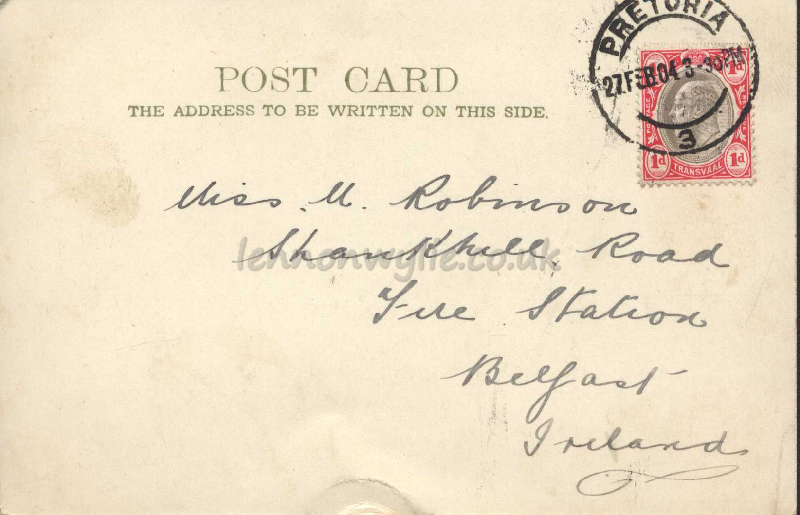 PRETORIA
27 FEB. 04 3-35PM
3
POSTAGE
1d 1d
1d TRANSVAAL 1d
POST CARD
THE ADDRESS TO BE WRITTEN ON THIS SIDE.
Miss. M. Robinson
Shankhill Road
Fire Station
Belfast
Ireland
lennonwylie.co.uk